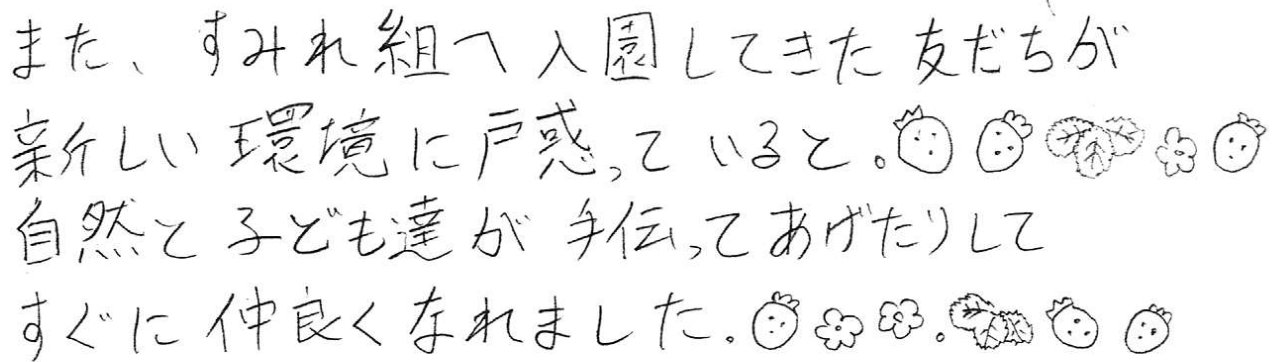 また、すみれ組へ入園してきた友だちが
新しい環境に戸惑っていると。
自然と子ども達が手伝ってあげたりして
すぐに仲良くなれました.